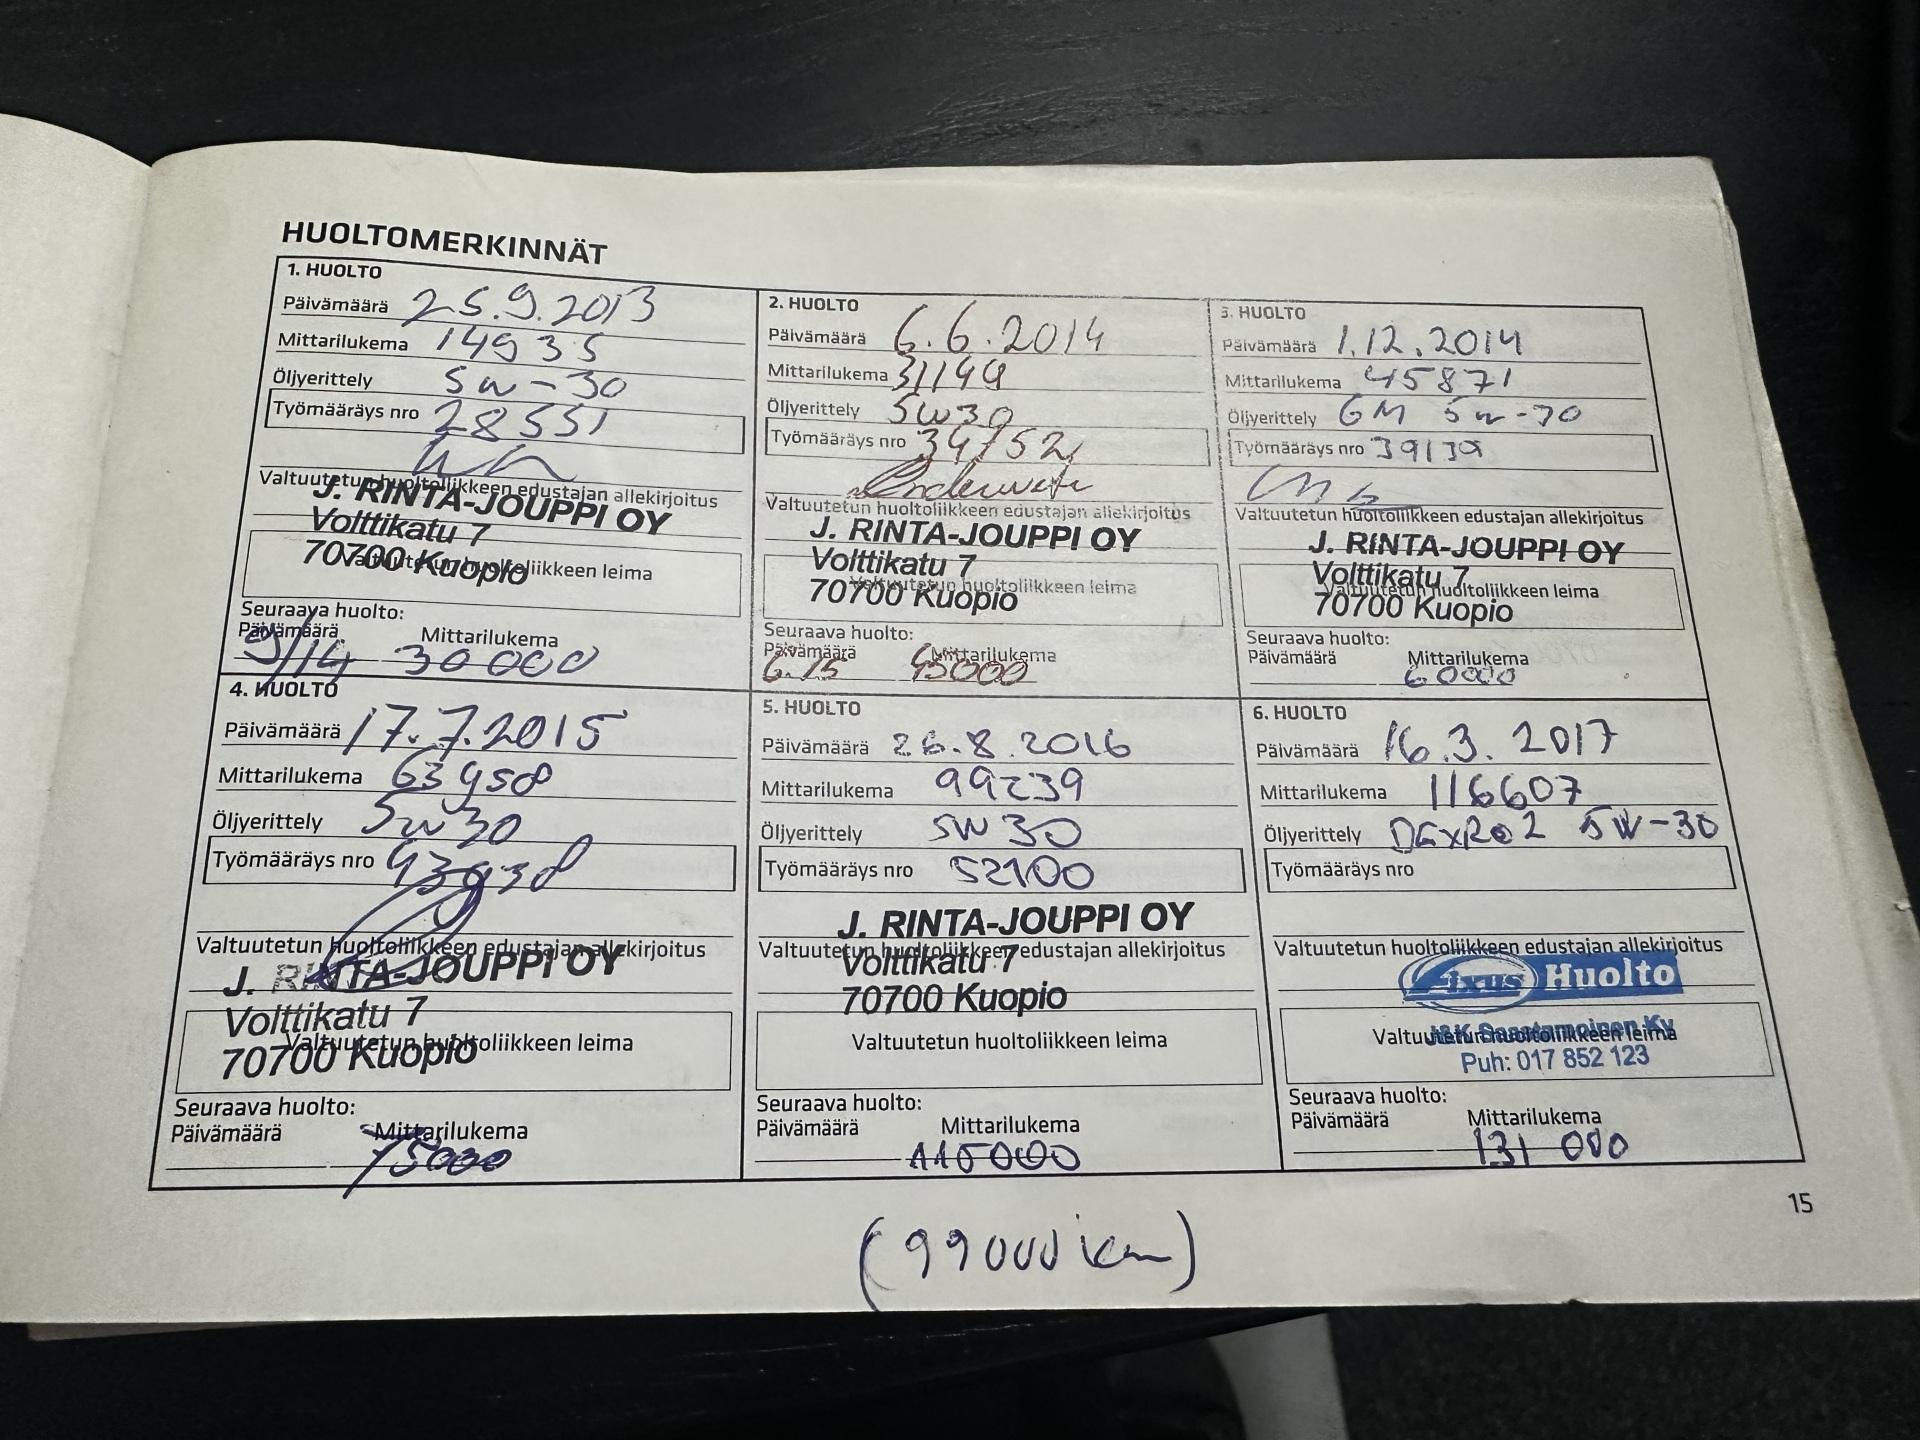 HUOLTOMERKINNÄT
1. HUOLTO
Päivämäärä 25.9.2013
Mittarilukema 14935
Öljyerittely 5w-30
Työmääräys nro 28551
Valtuutetun huoltoliikkeen edustajan allekirjoitus
J. RINTA-JOUPPI OY
Volttikatu 7
70700 Kuopio
Valtuutetun huoltoliikkeen leima
Seuraava huolto:
Päivämäärä Mittarilukema
9/14 30000
2. HUOLTO
Päivämäärä 6.6.2014
Mittarilukema 31149
Öljyerittely 5W30
Työmääräys nro 34752
Valtuutetun huoltoliikkeen edustajan allekirjoitus
J. RINTA-JOUPPI OY
Volttikatu 7
Valtuutetun huoltoliikkeen leima
70700 Kuopio
Seuraava huolto:
Päivämäärä Mittarilukema
6.15 45000
3. HUOLTO
Päivämäärä 1.12.2014
Mittarilukema 45871
Öljyerittely GM 5w-30
Työmääräys nro 39139
Valtuutetun huoltoliikkeen edustajan allekirjoitus
J. RINTA-JOUPPI OY
Volttikatu 7
Valtuutetun huoltoliikkeen leima
70700 Kuopio
Seuraava huolto:
Päivämäärä Mittarilukema
60000
4. HUOLTO
Päivämäärä 17.7.2015
Mittarilukema 63958
Öljyerittely 5w30
Työmääräys nro 43938
Valtuutetun huoltoliikkeen edustajan allekirjoitus
J. RINTA-JOUPPI OY
Volttikatu 7
Valtuutetun huoltoliikkeen leima
70700 Kuopio
Seuraava huolto:
Päivämäärä Mittarilukema
75000
5. HUOLTO
Päivämäärä 26.8.2016
Mittarilukema 99239
Öljyerittely 5W30
Työmääräys nro 52100
J. RINTA-JOUPPI OY
Valtuutetun huoltoliikkeen edustajan allekirjoitus
Volttikatu 7
70700 Kuopio
Valtuutetun huoltoliikkeen leima
Seuraava huolto:
Päivämäärä Mittarilukema
115000
6. HUOLTO
Päivämäärä 16.3.2017
Mittarilukema 116607
Öljyerittely DEXRO2 5W-30
Työmääräys nro
Valtuutetun huoltoliikkeen edustajan allekirjoitus
Fixus Huolto
J&K Saastamoinen Ky
Valtuutetun huoltoliikkeen leima
Puh: 017 852 123
Seuraava huolto:
Päivämäärä Mittarilukema
131 000
15
(99000 km)